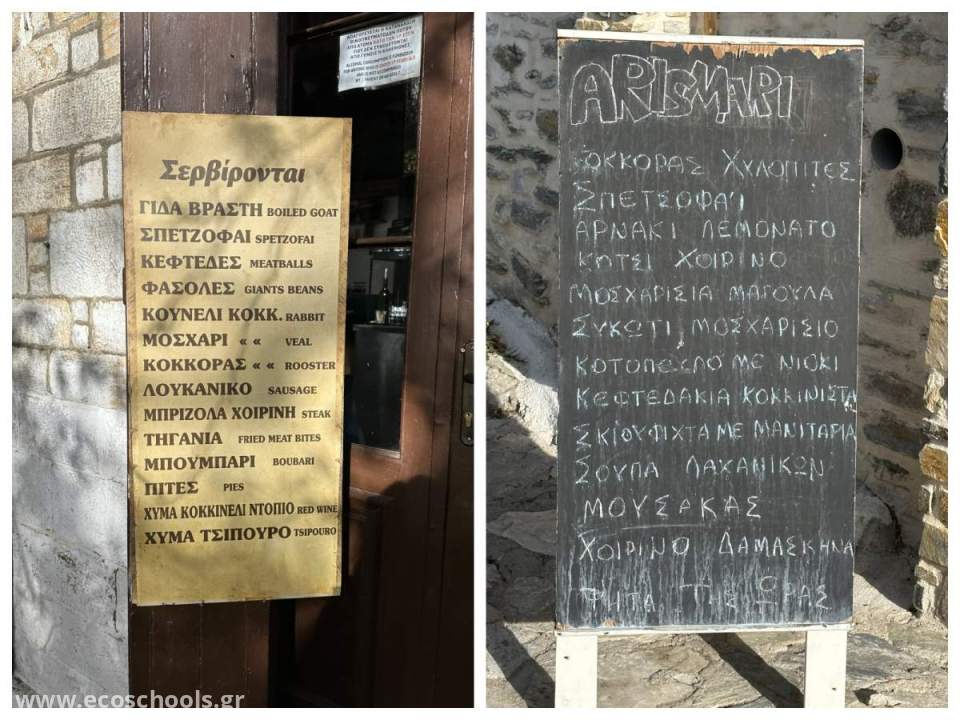 Σερβίρονται
ΓΙΔΑ ΒΡΑΣΤΗ BOILED GOAT
ΣΠΕΤΖΟΦΑΙ SPETZOFAI
ΚΕΦΤΕΔΕΣ MEATBALLS
ΦΑΣΟΛΕΣ GIANTS BEANS
ΚΟΥΝΕΛΙ ΚΟΚΚ. RABBIT
ΜΟΣΧΑΡΙ « « VEAL
ΚΟΚΚΟΡΑΣ « « ROOSTER
ΛΟΥΚΑΝΙΚΟ SAUSAGE
ΜΠΡΙΖΟΛΑ ΧΟΙΡΙΝΗ STEAK
ΤΗΓΑΝΙΑ FRIED MEAT BITES
ΜΠΟΥΜΠΑΡΙ BOUBARI
ΠΙΤΕΣ PIES
ΧΥΜΑ ΚΟΚΚΙΝΕΛΙ ΝΤΟΠΙΟ RED WINE
ΧΥΜΑ ΤΣΙΠΟΥΡΟ TSIPOURO
ARISMARI
ΚΟΚΚΟΡΑΣ ΧΥΛΟΠΙΤΕΣ
ΣΠΕΤΣΟΦΑΪ
ΑΡΝΑΚΙ ΛΕΜΟΝΑΤΟ
ΚΟΤΣΙ ΧΟΙΡΙΝΟ
ΜΟΣΧΑΡΙΣΙΑ ΜΑΓΟΥΛΑ
ΣΥΚΩΤΙ ΜΟΣΧΑΡΙΣΙΟ
ΜΕ ΝΙΟΚΙ
ΚΕΦΤΕΔΑΚΙΑ ΚΟΚΚΙΝΙΣΤΑ
ΣΚΙΟΥΦΙΧΤΑ ΜΕ ΜΑΝΙΤΑΡΙΑ
ΣΟΥΠΑ ΛΑΧΑΝΙΚΩΝ
ΜΟΥΣΑΚΑΣ
ΧΟΙΡΙΝΟ ΔΑΜΑΣΚΗΝΑ
ΤΗΣ ΩΡΑΣ
www.ecoschools.gr